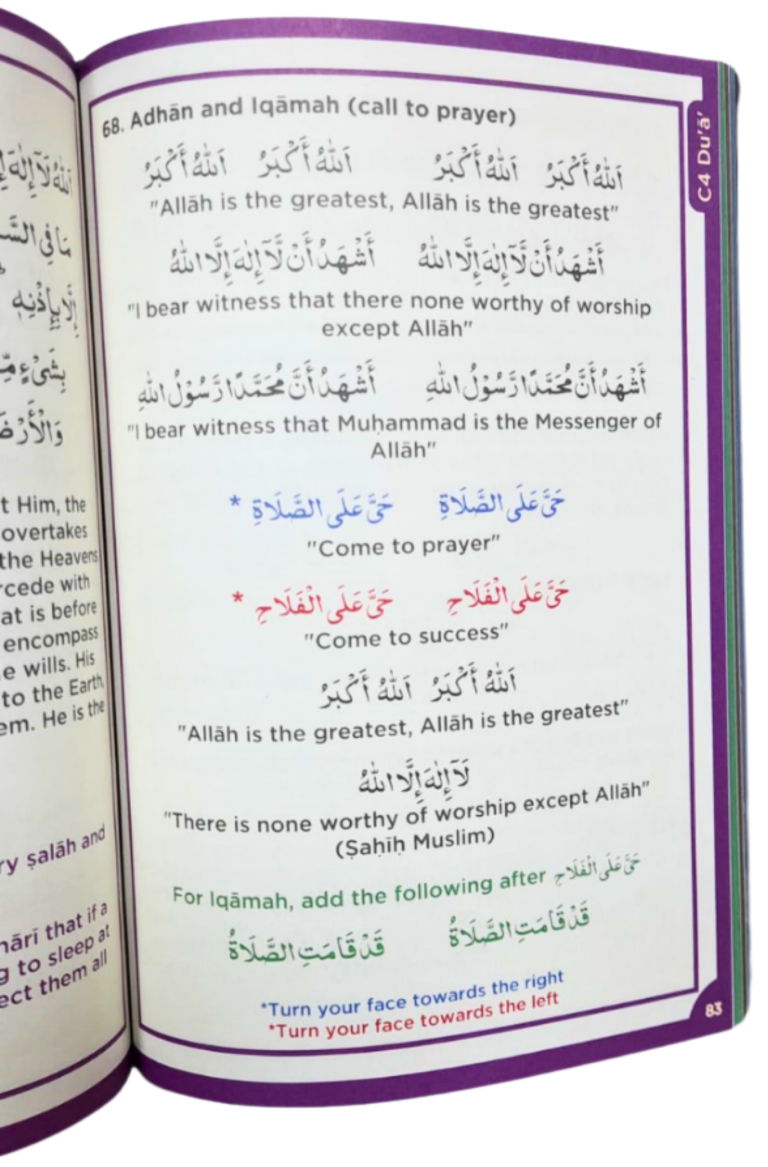 اَللّٰهُ لَآ إِلٰهَ
مَا فِي السَّ
إِلَّا بِإِذْنِهٖ
بِشَيْءٍ مِّ
وَالْأَرْضَ
t Him, the
overtakes
the Heavens
rcede with
at is before
encompass
e wills. His
to the Earth,
em. He is the
ry ṣalāh and
hārī that if a
g to sleep at
ect them all
68. Adhān and Iqāmah (call to prayer)
اَللّٰهُ أَكْبَرُ اَللّٰهُ أَكْبَرُ اَللّٰهُ أَكْبَرُ اَللّٰهُ أَكْبَرُ
"Allāh is the greatest, Allāh is the greatest"
أَشْهَدُ أَنْ لَّآ إِلٰهَ إِلَّا اللّٰهُ أَشْهَدُ أَنْ لَّآ إِلٰهَ إِلَّا اللّٰهُ
"I bear witness that there none worthy of worship
except Allāh"
أَشْهَدُ أَنَّ مُحَمَّدًا رَّسُوْلُ اللّٰهِ أَشْهَدُ أَنَّ مُحَمَّدًا رَّسُوْلُ اللّٰهِ
"I bear witness that Muḥammad is the Messenger of
Allāh"
حَيَّ عَلَى الصَّلَاةِ حَيَّ عَلَى الصَّلَاةِ *
"Come to prayer"
حَيَّ عَلَى الْفَلَاحِ حَيَّ عَلَى الْفَلَاحِ *
"Come to success"
اَللّٰهُ أَكْبَرُ اَللّٰهُ أَكْبَرُ
"Allāh is the greatest, Allāh is the greatest"
لَآ إِلٰهَ إِلَّا اللّٰهُ
"There is none worthy of worship except Allāh"
(Ṣaḥīḥ Muslim)
For Iqāmah, add the following after حَيَّ عَلَى الْفَلَاحِ
قَدْ قَامَتِ الصَّلَاةُ قَدْ قَامَتِ الصَّلَاةُ
*Turn your face towards the right
*Turn your face towards the left
C4 Du'ā'
83